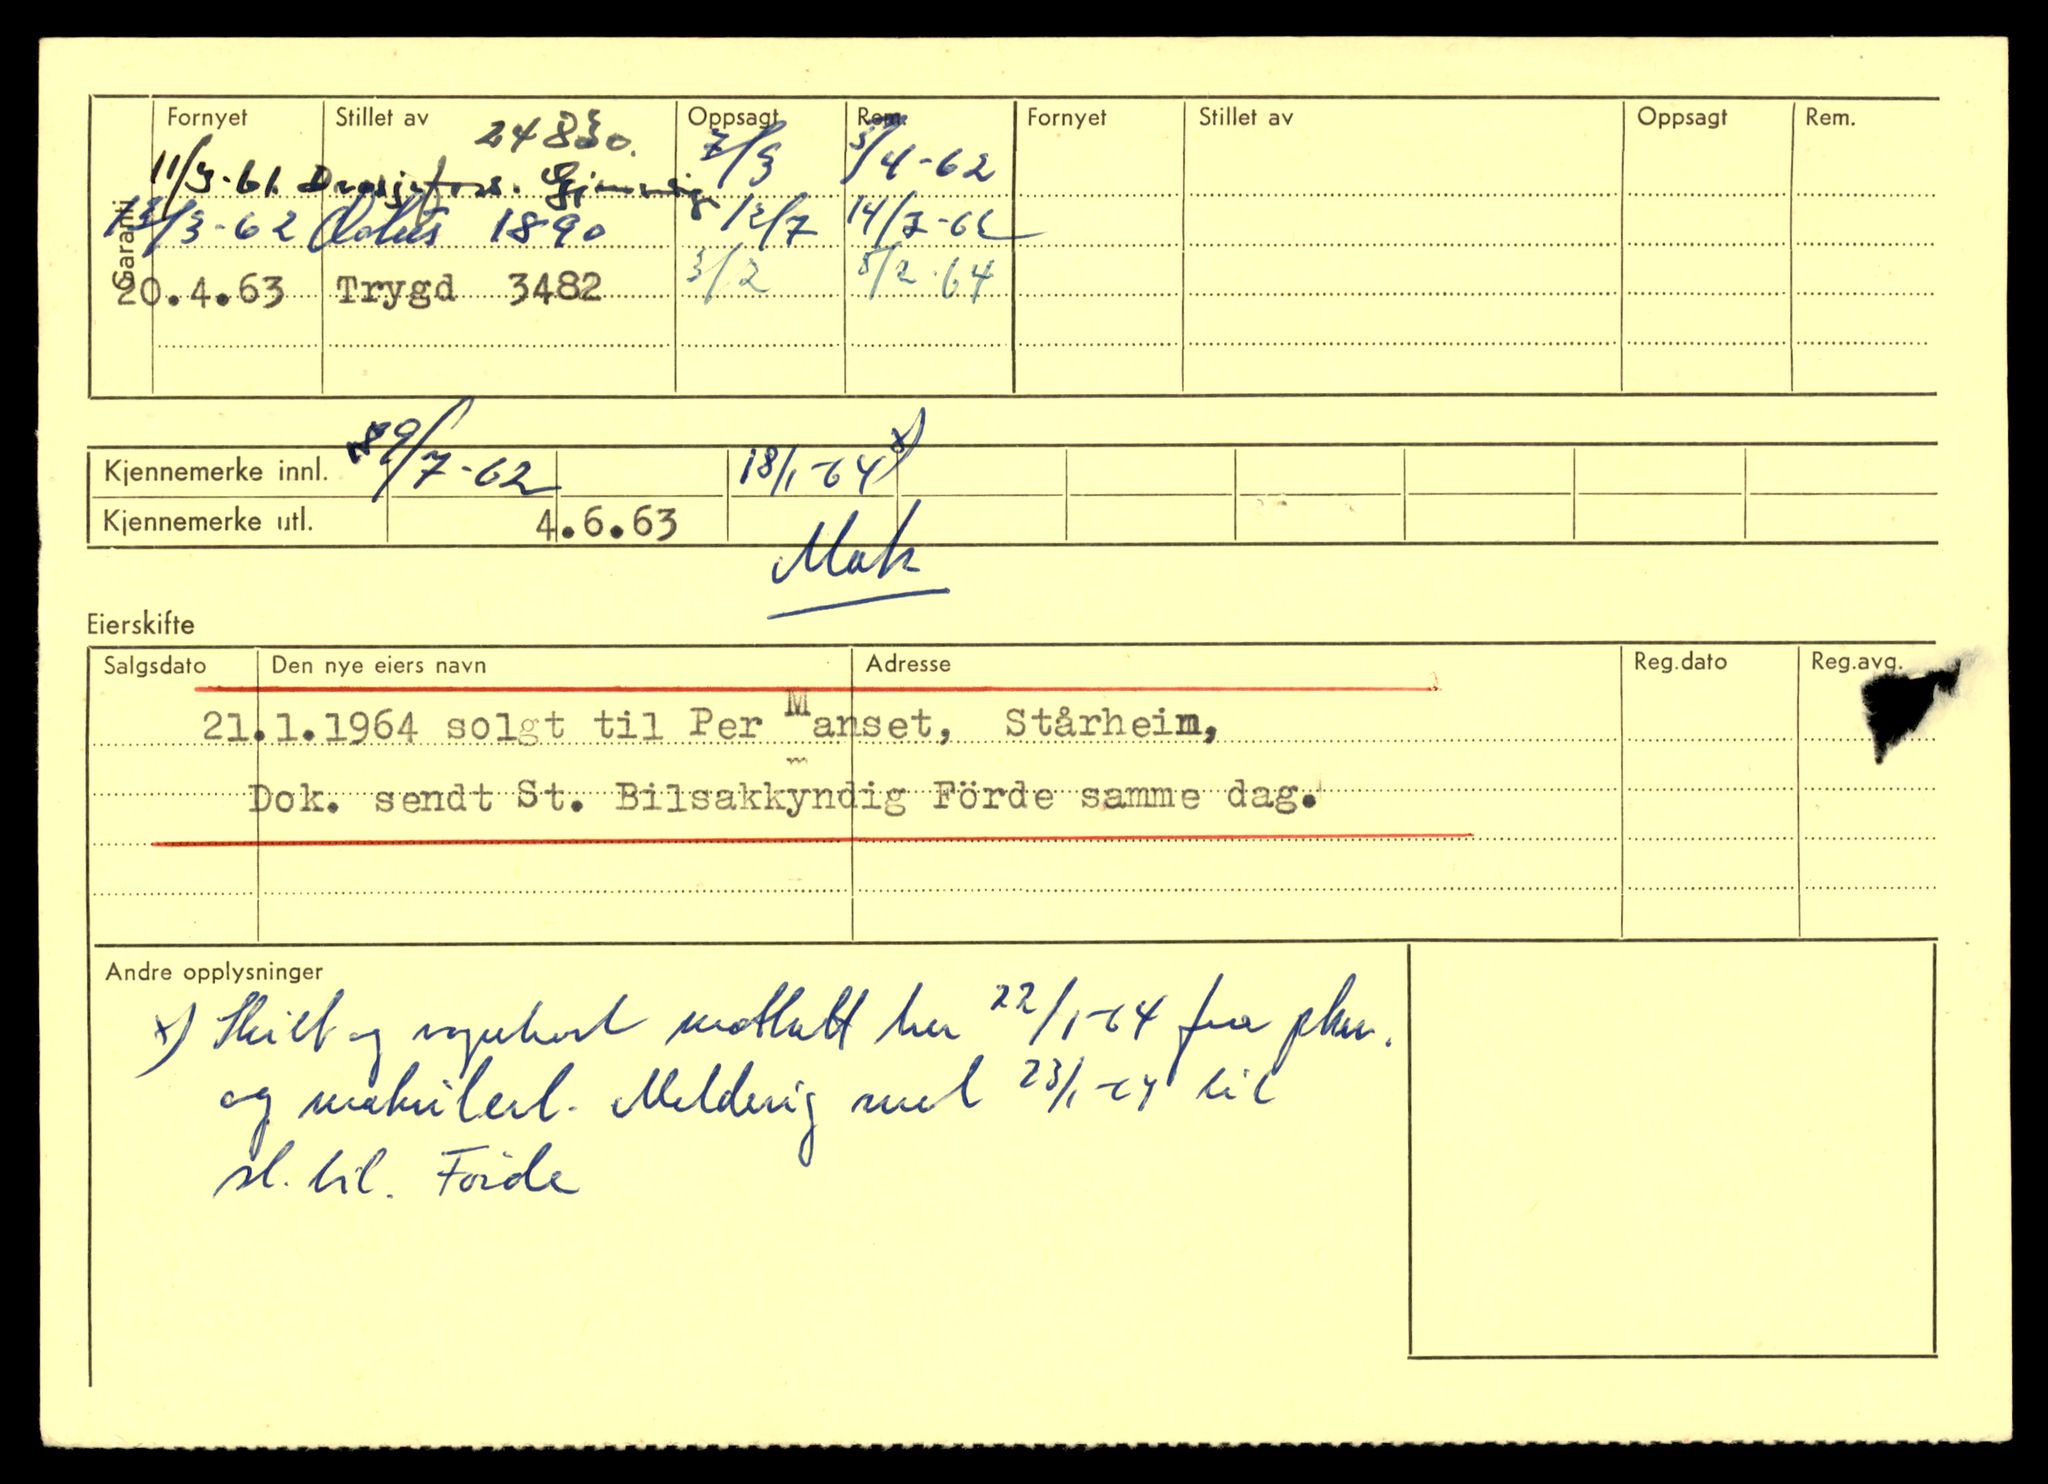 Fornyet Stillet av Oppsagt Rem. Fornyet Stillet av Oppsagt Rem.
24830.
11/3-61. 7/3 3/4-62
13/3-62 1890 12/7 14/7-62
Garanti
20.4.63 Trygd 3482 3/2 5/2-64
Kjennemerke innl. 19/7-62 18/1-64 x)
Kjennemerke utl. 4.6.63
Mak
Eierskifte
Salgsdato Den nye eiers navn Adresse Reg.dato Reg.avg.
21.1.1964 solgt til Per Manset, Stårheim,
Dok. sendt St. Bilsakkyndig Förde samme dag.
Andre opplysninger
x) Skilt og vognkort mottatt her 22/1-64 fra
og makulert. Melding med 23/1-64 til
st. bil. Förde